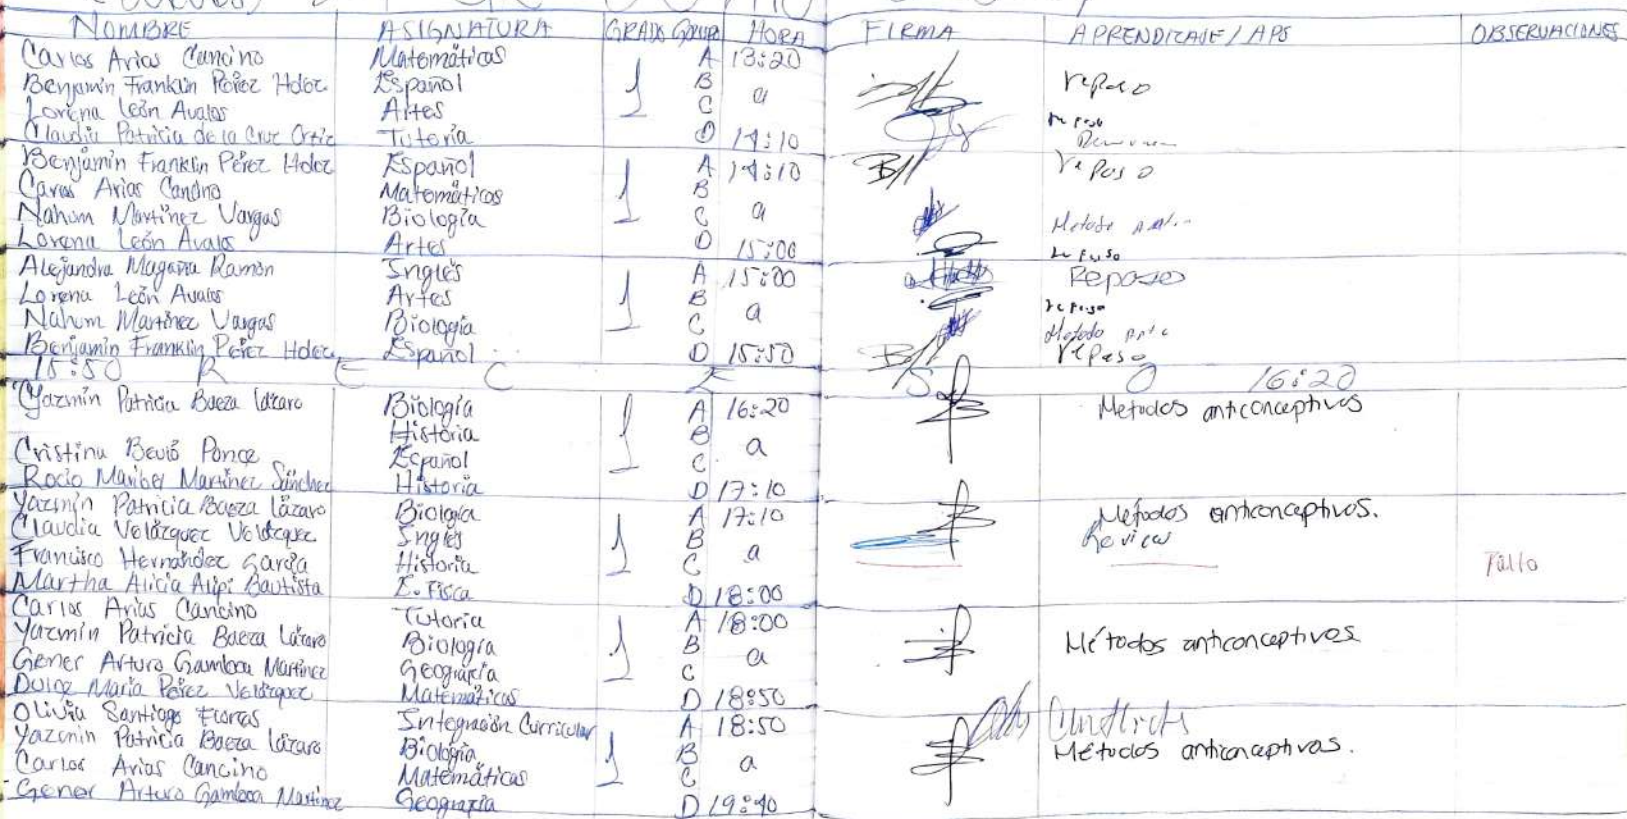 NOMBRE ASIGNATURA GRADO Grupo HORA FIRMA APRENDIZAJE/APS OBSERVACIONES
Carlos Arias Cancino Matemáticas A 13:20
Benjamín Franklin Pérez Hdez Español 1 B a repaso
Lorena León Avalos Artes C repaso
Claudia Patricia de la Cruz Ortiz Tutoría D 14:10
Benjamín Franklin Pérez Hdez Español A 14:10 repaso
Carlos Arias Cancino Matemáticas 1 B
Nahum Martínez Vargas Biología C a Metodo
Lorena León Avalos Artes D 15:00 repaso
Alejandra Magaña Ramón Inglés A 15:00 Repaso
Lorena León Avalos Artes 1 B a repaso
Nahum Martínez Vargas Biología C Metodo
Benjamín Franklin Pérez Hdez Español D 15:50 repaso
15:50 R E C E S O 16:20
Yazmín Patricia Baeza Lázaro Biología A 16:20 Metodos anticonceptivos
Historia 1 B
Cristina Ponce Español C a
Rocío Maribel Martínez Sánchez Historia D 17:10
Yazmín Patricia Baeza Lázaro Biología A 17:10 Métodos anticonceptivos.
Claudia Velázquez Velázquez Inglés 1 B
Francisco Hernández García Historia C a Falto
Martha Alicia Alipi Bautista E. Física D 18:00
Carlos Arias Cancino Tutoría A 18:00
Yazmín Patricia Baeza Lázaro Biología 1 B a Métodos anticonceptivos
Gener Arturo Gamboa Martínez Geografía C
Dulce María Pérez Velázquez Matemáticas D 18:50
Olivia Santiago Flores Integración Curricular A 18:50
Yazmín Patricia Baeza Lázaro Biología 1 B a Métodos anticonceptivos.
Carlos Arias Cancino Matemáticas C
Gener Arturo Gamboa Martínez Geografía D 19:40